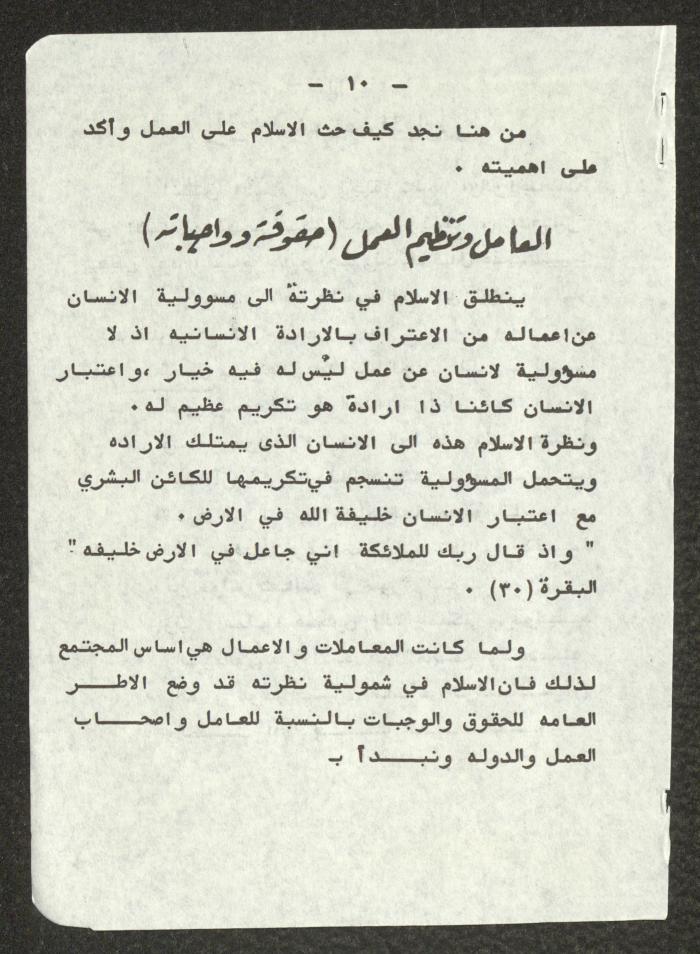 - ١٠ -
من هنا نجد كيف حث الاسلام على العمل وأكد
على اهميته .
العامل وتنظيم العمل (حقوقة وواجباته)
ينطلق الاسلام في نظرتة الى مسوولية الانسان
عن اعماله من الاعتراف بالارادة الانسانيه اذ لا
مسؤولية لانسان عن عمل ليس له فيه خيار ،واعتبار
الانسان كائنا ذا ارادة هو تكريم عظيم له.
ونظرة الاسلام هذه الى الانسان الذى يمتلك الاراده
ويتحمل المسؤولية تنسجم في تكريمها للكائن البشري
مع اعتبار الانسان خليفة الله في الارض .
" واذ قال ربك للملائكة اني جاعل في الارض خليفه "
البقرة (٣٠) .
ولما كانت المعاملات والاعمال هي اساس المجتمع
لذلك فان الاسلام في شمولية نظرته قد وضع الاطــر
العامه للحقوق والوجبات بالنسبة للعامل واصحــاب
العمل والدوله ونبــدأ بـ